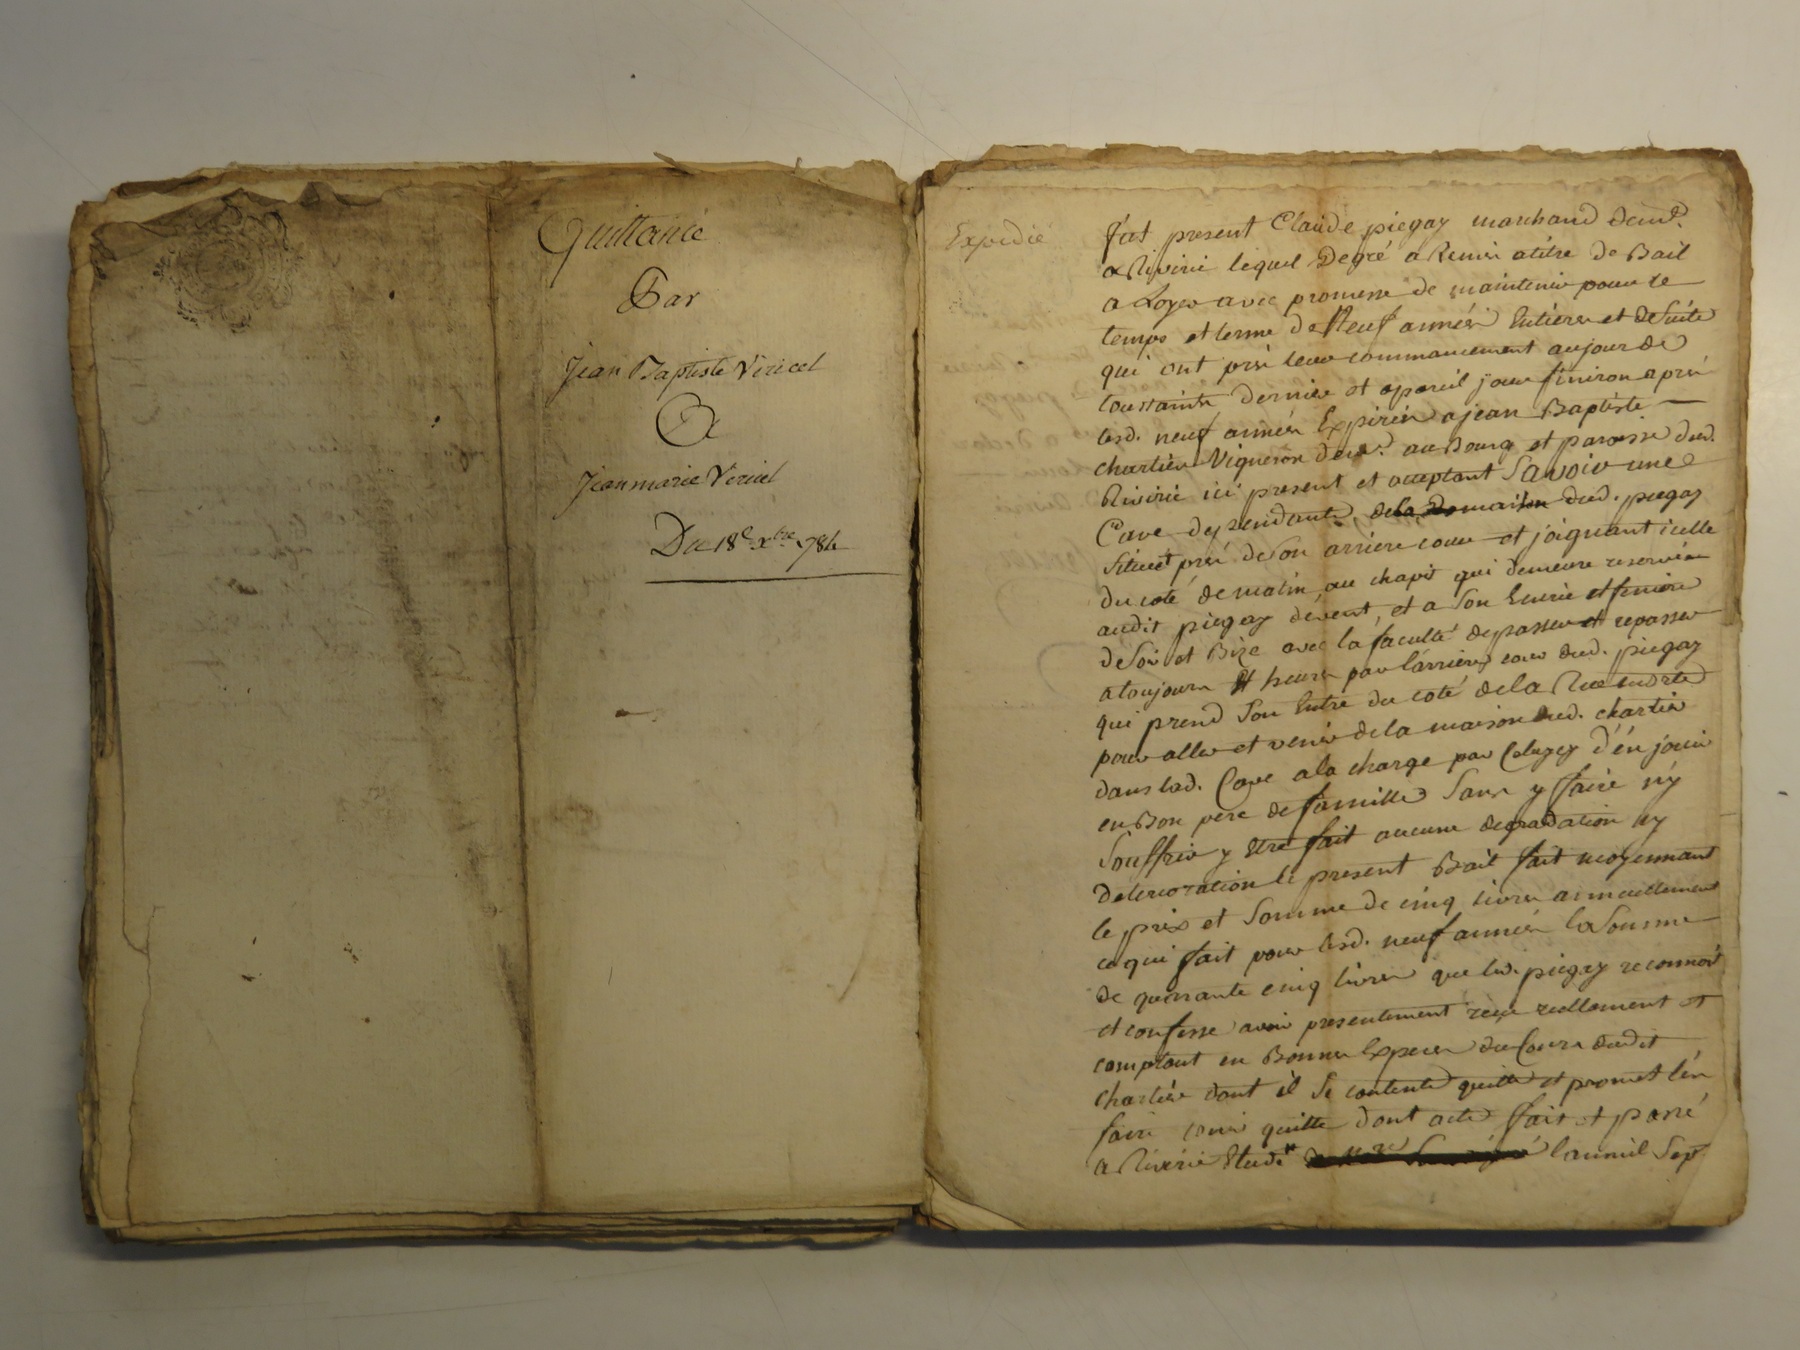 Quittance
Par
Jean Baptiste Viricel
A
Jeanmarie Viricel
Du 18e xbre 784
Expedié
fut present Claude piegay marchand demt.
a Riverie lequel Degré a Remis atitre de Bail
a Loyer avec promesse de maintenir pour le
temps et terme de Neuf années Entieres et deSuite
qui ont pris leur commancement aujour de
toussaints dernier et apareil jour finiron aprés
lesd. neuf années Expirées ajean Baptiste
chartier Vigneron demt. au Bourg et paroisse dud.
Riverie ici present et acceptant Savoir une
Cave dependante dela maison dud. piegay
Situeé prés deSon arriere cour et joignant icelle
du coté de matin, au chapis qui demeure reservée
audit piegay devent, et a Son Ecurie et feniere
deSoir et Bize avec la faculté depasser et repasser
atoujours Et heures par l'arriere cour dud. piegay
qui prend Son Entré du coté dela Rue morte
pour aller et venir dela maison dud. chartier
dans lad. Cave ala charge par Celuycy d'én jouir
en Bon pere defamille Sans y faire n'y
Souffrir y Etre fait aucune degradation ny
deterioration le present Bail fait moyennant
le prix et Somme de cinq livres annuellement
ce qui fait pour lesd. neuf années la Somme
de quarante cinq livres que led. piegay reconnoit
et confesse avoir presentement reçu reellement et
comptant en Bonnes Especes du Cours dudit
chartier dont il Se contente quitte et promet l'én
faire tenir quitte dont acte fait et passé
a Riverie Etude l'anmil Sept